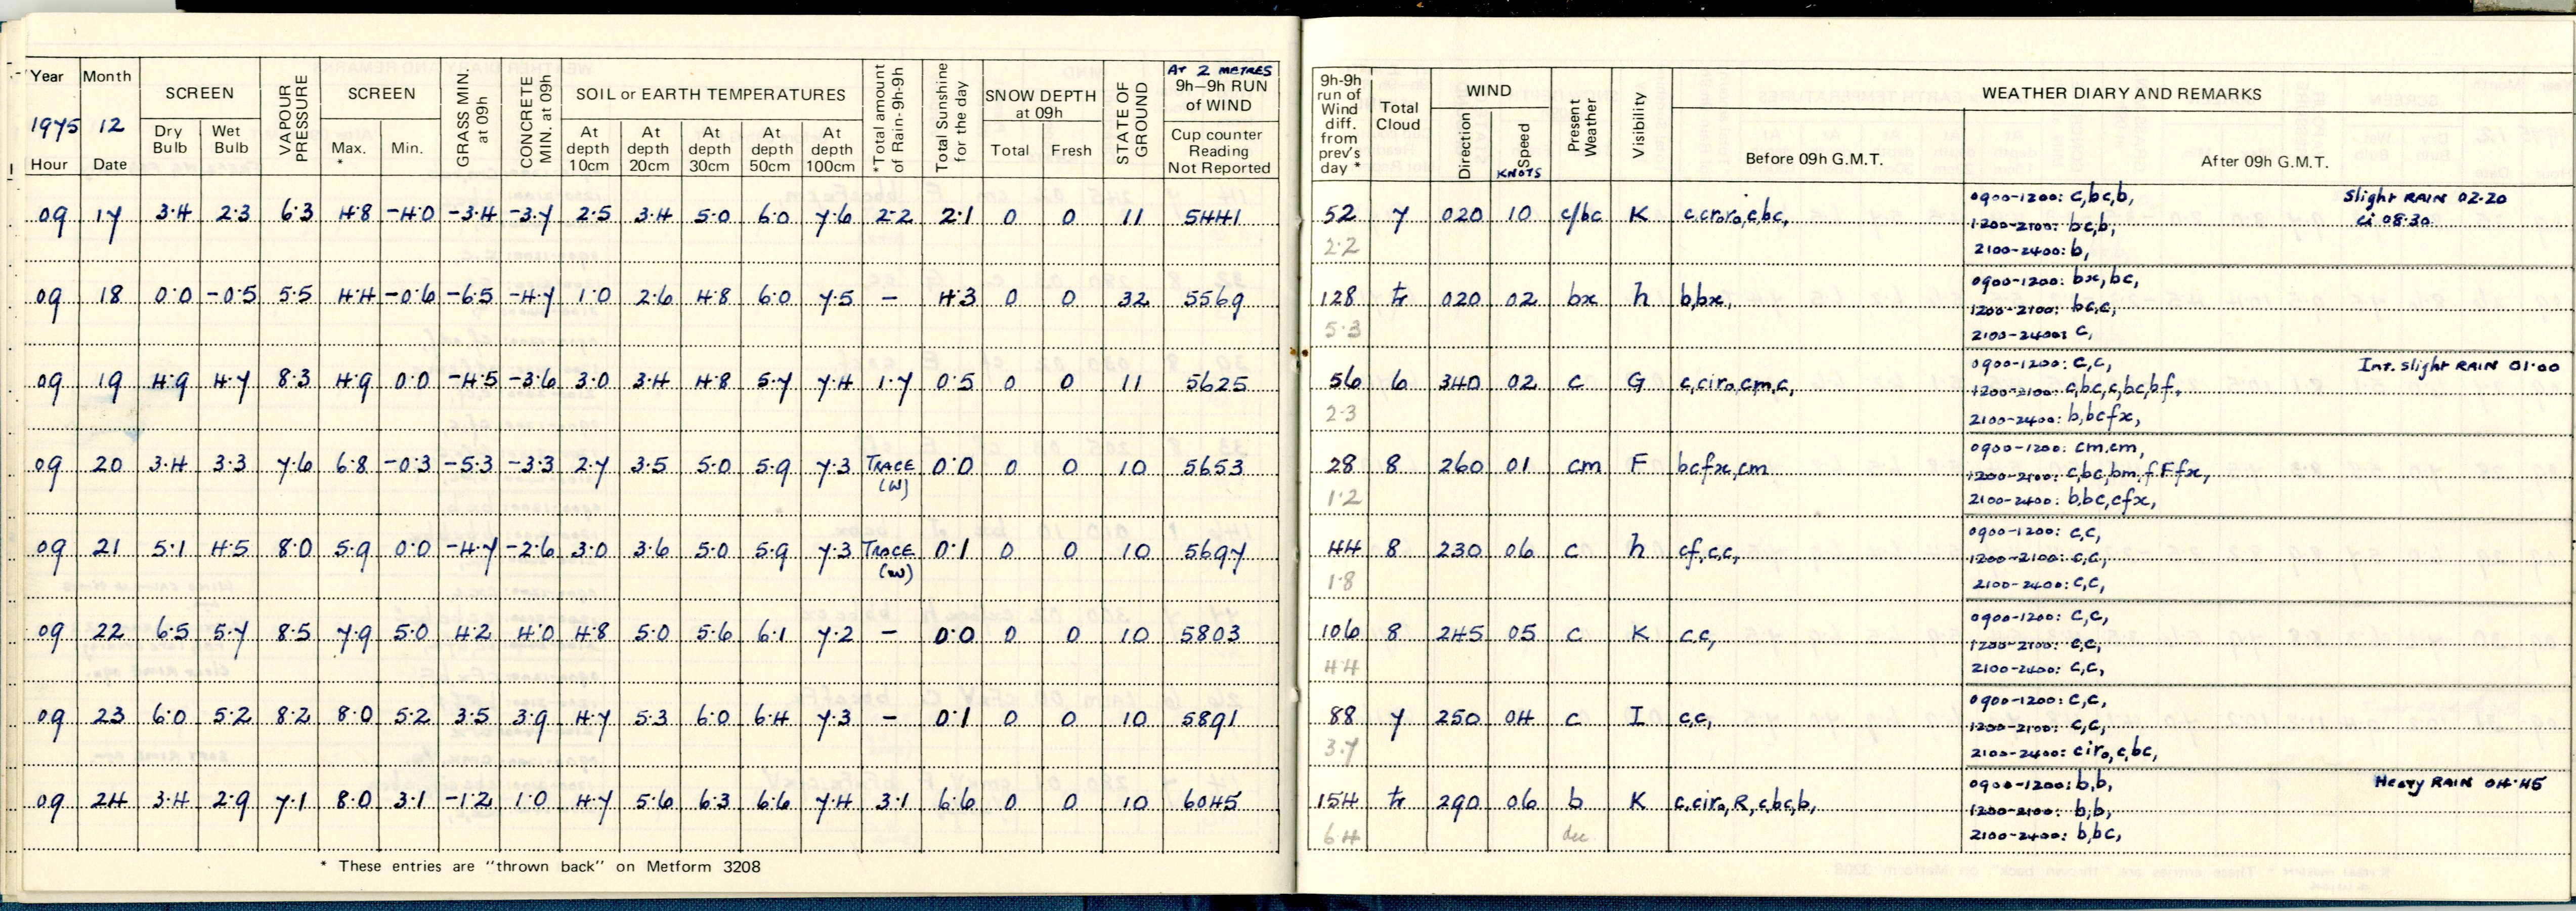 Year Month SCREEN VAPOUR PRESSURE SCREEN GRASS MIN. at 09h CONCRETE MIN. at 09h SOIL or EARTH TEMPERATURES *Total amount of Rain-9h-9h Total Sunshine for the day SNOW DEPTH at 09h STATE OF GROUND AT 2 METRES 9h–9h RUN of WIND
1975 12 Dry Bulb Wet Bulb Max. * Min. At depth 10cm At depth 20cm At depth 30cm At depth 50cm At depth 100cm Total Fresh Cup counter Reading Not Reported
Hour Date
09 17 3.4 2.3 6.3 4.8 -4.0 -3.4 -3.7 2.5 3.4 5.0 6.0 7.6 2.2 2.1 0 0 11 5441
09 18 0.0 -0.5 5.5 4.4 -0.6 -6.5 -4.7 1.0 2.6 4.8 6.0 7.5 — 4.3 0 0 32 5569
09 19 4.9 4.7 8.3 4.9 0.0 -4.5 -3.6 3.0 3.4 4.8 5.7 7.4 1.7 0.5 0 0 11 5625
09 20 3.4 3.3 7.6 6.8 -0.3 -5.3 -3.3 2.7 3.5 5.0 5.9 7.3 TRACE (W) 0.0 0 0 10 5653
09 21 5.1 4.5 8.0 5.9 0.0 -4.7 -2.6 3.0 3.6 5.0 5.9 7.3 TRACE (W) 0.1 0 0 10 5697
09 22 6.5 5.7 8.5 7.9 5.0 4.2 4.0 4.8 5.0 5.6 6.1 7.2 — 0.0 0 0 10 5803
09 23 6.0 5.2 8.2 8.0 5.2 3.5 3.9 4.7 5.3 6.0 6.4 7.3 — 0.1 0 0 10 5891
09 24 3.4 2.9 7.1 8.0 3.1 -1.2 1.0 4.7 5.6 6.3 6.6 7.4 3.1 6.6 0 0 10 6045
* These entries are "thrown back" on Metform 3208
9h-9h run of Wind diff. from prev's day * Total Cloud WIND Present Weather Visibility WEATHER DIARY AND REMARKS
Direction Speed KNOTS Before 09h G.M.T. After 09h G.M.T.
0900-1200: c,bc,b, Slight RAIN 02.20
52 7 020 10 c/bc K c,cr₀r₀,c,bc, 1200-2100: bc,b, ci 08.30
2.2 2100-2400: b,
0900-1200: bx,bc,
128 tr 020 02 bx h b,bx, 1200-2100: bc,c,
5.3 2100-2400: c,
0900-1200: c,c, Int. slight RAIN 01.00
56 6 340 02 c G c,cir₀,cm,c, 1200-2100: c,bc,c,bc,bf,
2.3 2100-2400: b,bcfx,
0900-1200: cm,cm,
28 8 260 01 cm F bcfx,cm 1200-2100: c,bc,bm,fFfx,
1.2 2100-2400: b,bc,cfx,
0900-1200: c,c,
44 8 230 06 c h cf,c,c, 1200-2100: c,c,
1.8 2100-2400: c,c,
0900-1200: c,c,
106 8 245 05 c K c,c, 1200-2100: c,c,
4.4 2100-2400: c,c,
0900-1200: c,c,
88 7 250 04 c I c,c, 1200-2100: c,c,
3.7 2100-2400: cir₀,c,bc,
0900-1200: b,b, Heavy RAIN 04.45
154 tr 290 06 b K c,cir₀,R,c,bc,b, 1200-2100: b,b,
6.4 dec 2100-2400: b,bc,